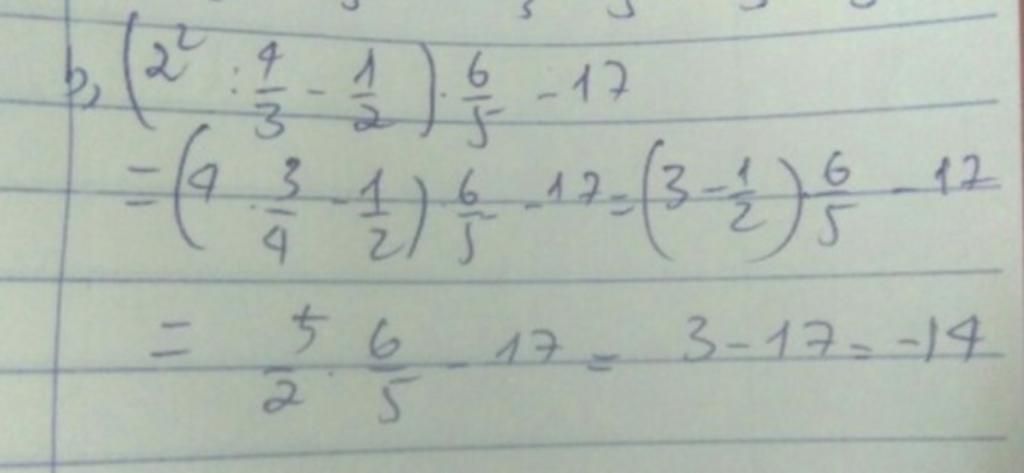 b, (2² : 4/3 - 1/2) · 6/5 - 17
= (4 · 3/4 - 1/2) · 6/5 - 17 = (3 - 1/2) · 6/5 - 17
= 5/2 · 6/5 - 17 = 3 - 17 = -14